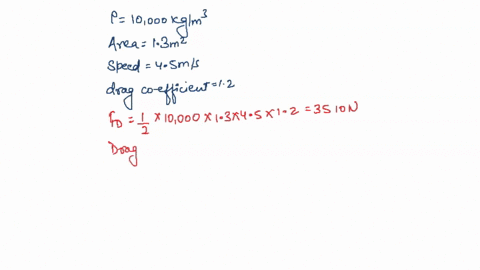 ρ = 10,000 kg/m³
Area = 1.3m²
Speed = 4.5m/s
drag co-efficient = 1.2
F_D = 1/2 × 10,000 × 1.3 × 4.5 × 1.2 = 3510N
Drag